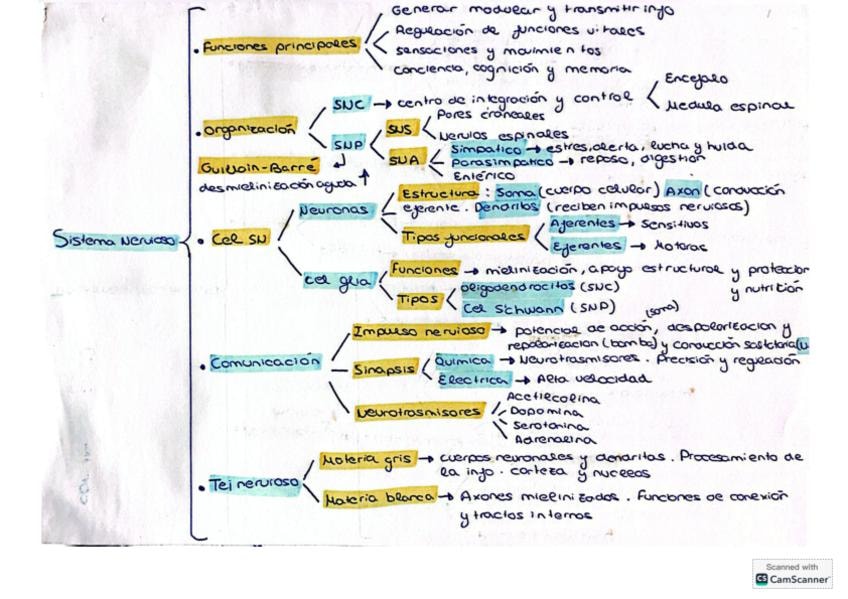 Generar modular y transmitir info
• Funciones principales
Regulación de funciones vitales
sensaciones y movimientos
conciencia, cognición y memoria
• Organización
SNC → centro de integración y control
Encéfalo
Medula espinal
SNP
SUS
Pares craneales
Nervios espinales
SUA
Simpatico → estres, alerta, lucha y huida
Parasimpatico → reposo, digestión
Entérico
Guillain-Barré
desmielinización aguda ↑
Sistema Nervioso
• Cel SN
Neuronas
Estructura : Soma (cuerpo celular) Axon (conducción
eferente. Dendritas (reciben impulsos nerviosos)
Tipos funcionales
Aferentes → Sensitivos
Eferentes → Motoras
Cel glia
Funciones → mielinización, apoyo estructural y protección
y nutrición
Tipos
Oligodendrocitos (SNC)
Cel Schwann (SNP)
• Comunicación
Impulso nervioso → potencias de acción, despolarizacion y
repolarizacion (bomba) y conducción
Sinapsis
Química → Neurotrasmisores. Precisión y regulación
Electrica → Alta velocidad
Neurotrasmisores
Acetilcolina
Dopamina
Serotonina
Adrenalina
• Tej nervioso
Materia gris → cuerpos neuronales y dendritas. Procesamiento de
la info. corteza y nucleos
Materia blanca → Axones mielinizados. Funciones de conexión
y tractos internos
Scanned with
CS CamScanner